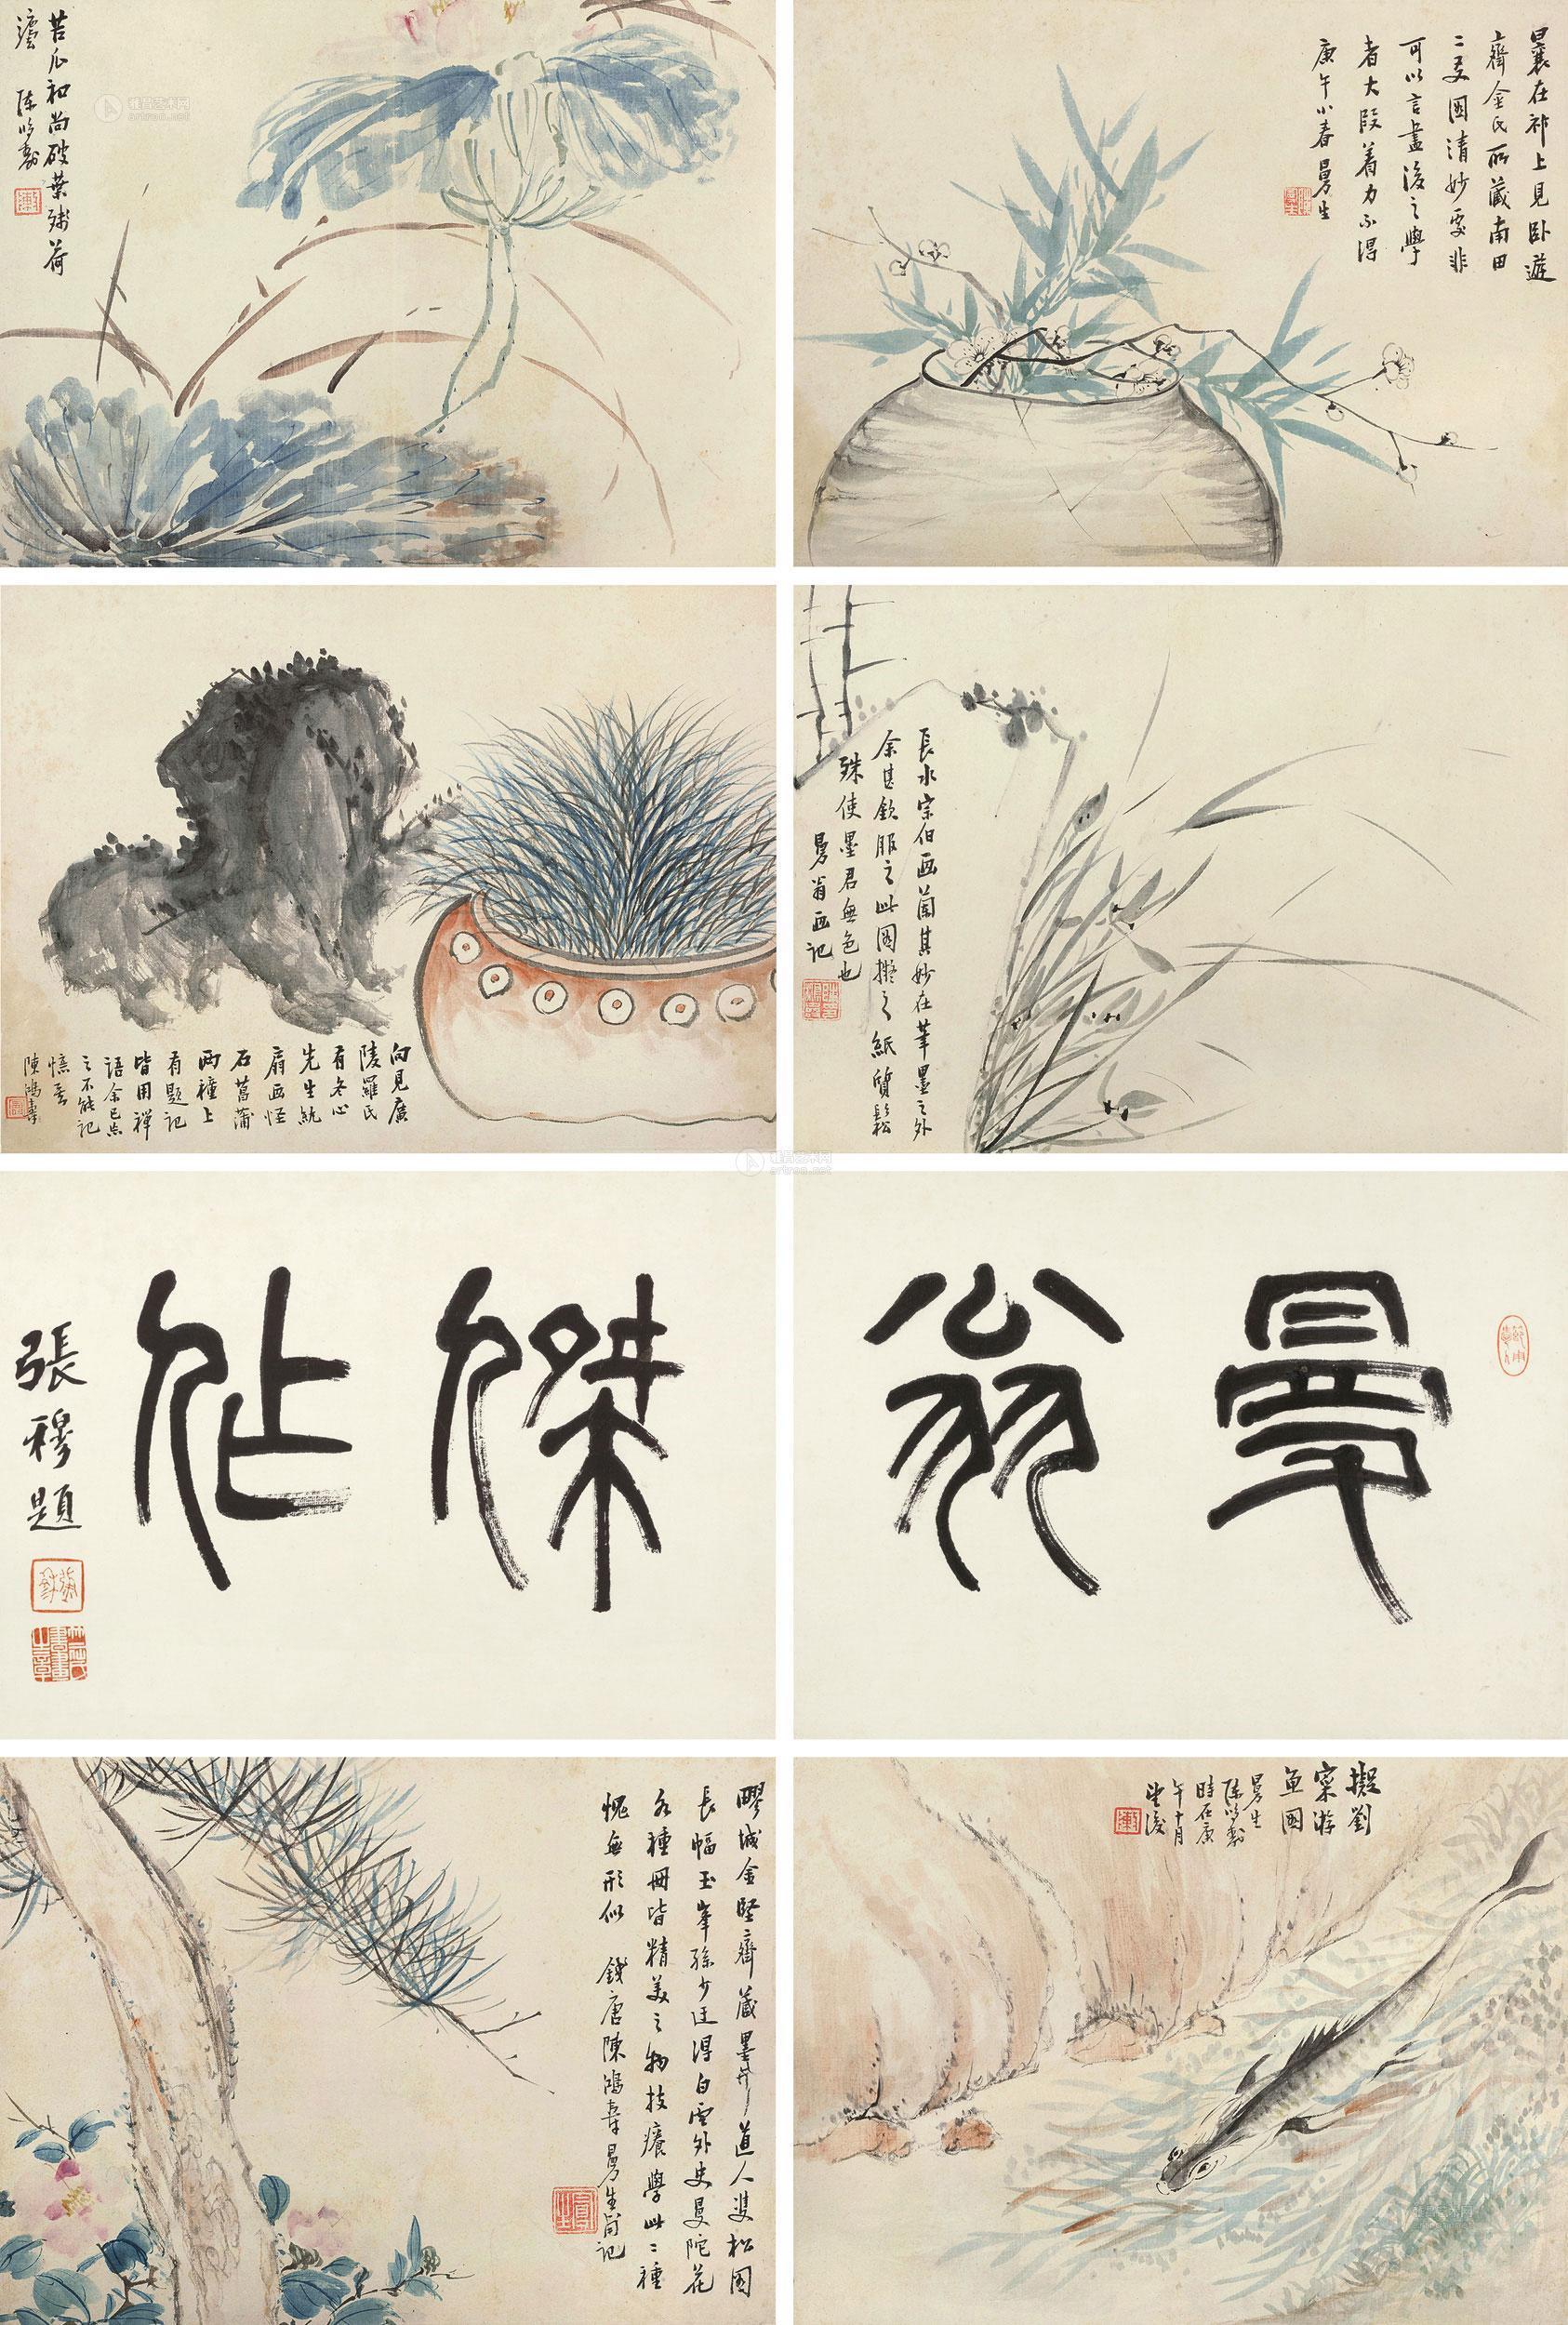 苦瓜和尚破葉殘荷
陈鸿壽
曩在祁上見卧遊
齋金氏所藏南田
二叟圖清妙要非
可以言畫後之學
者大段着力不得
庚午小春曼生
長水宗伯画蘭其妙在筆墨之外
余甚欽服之此圖擬之紙質鬆
殊使墨君無色也
曼翁画記
向見廣
陵羅氏
有冬心
先生紈
扇画怪
石菖蒲
兩種上
有題記
皆用禅
語余已忘
之不能記
憶矣
陳鴻壽
曼翁
傑作
張穆題
擬劉
寀游
魚圖
曼生
陈鸿壽
時在庚
午十月
望後
膠城金堅齋藏墨井道人雙松圖
長幅玉峯孫少迂得白雲外史曼陀花
各種冊皆精美之物技癢學此二種
愧無形似 錢唐陳鴻壽曼生甫記
雅昌艺术网
artron.net